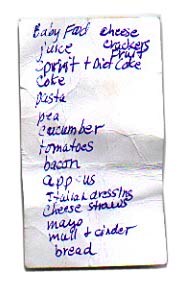 Baby Food cheese
juice crackers
Fruit
Sprit + Diet Coke
Coke
pasta
pea
cucumber
tomatoes
bacon
app us
Italian dressing
cheese straws
mayo
mull + cinder
bread